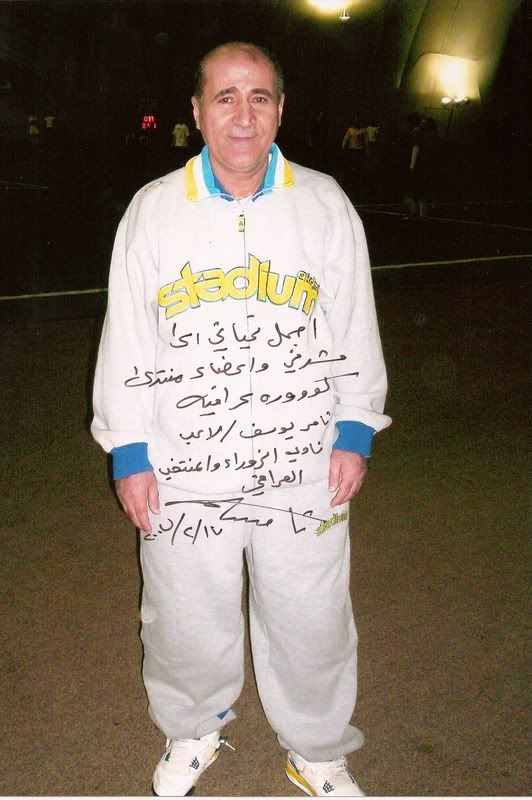 stadium
اجمل تحياتي الى
مشرفي واعضاء منتدى
كووورة عراقية
ثامر يوسف / لاعب
نادي الزوراء والمنتخب
العراقي
ثامر
stadium